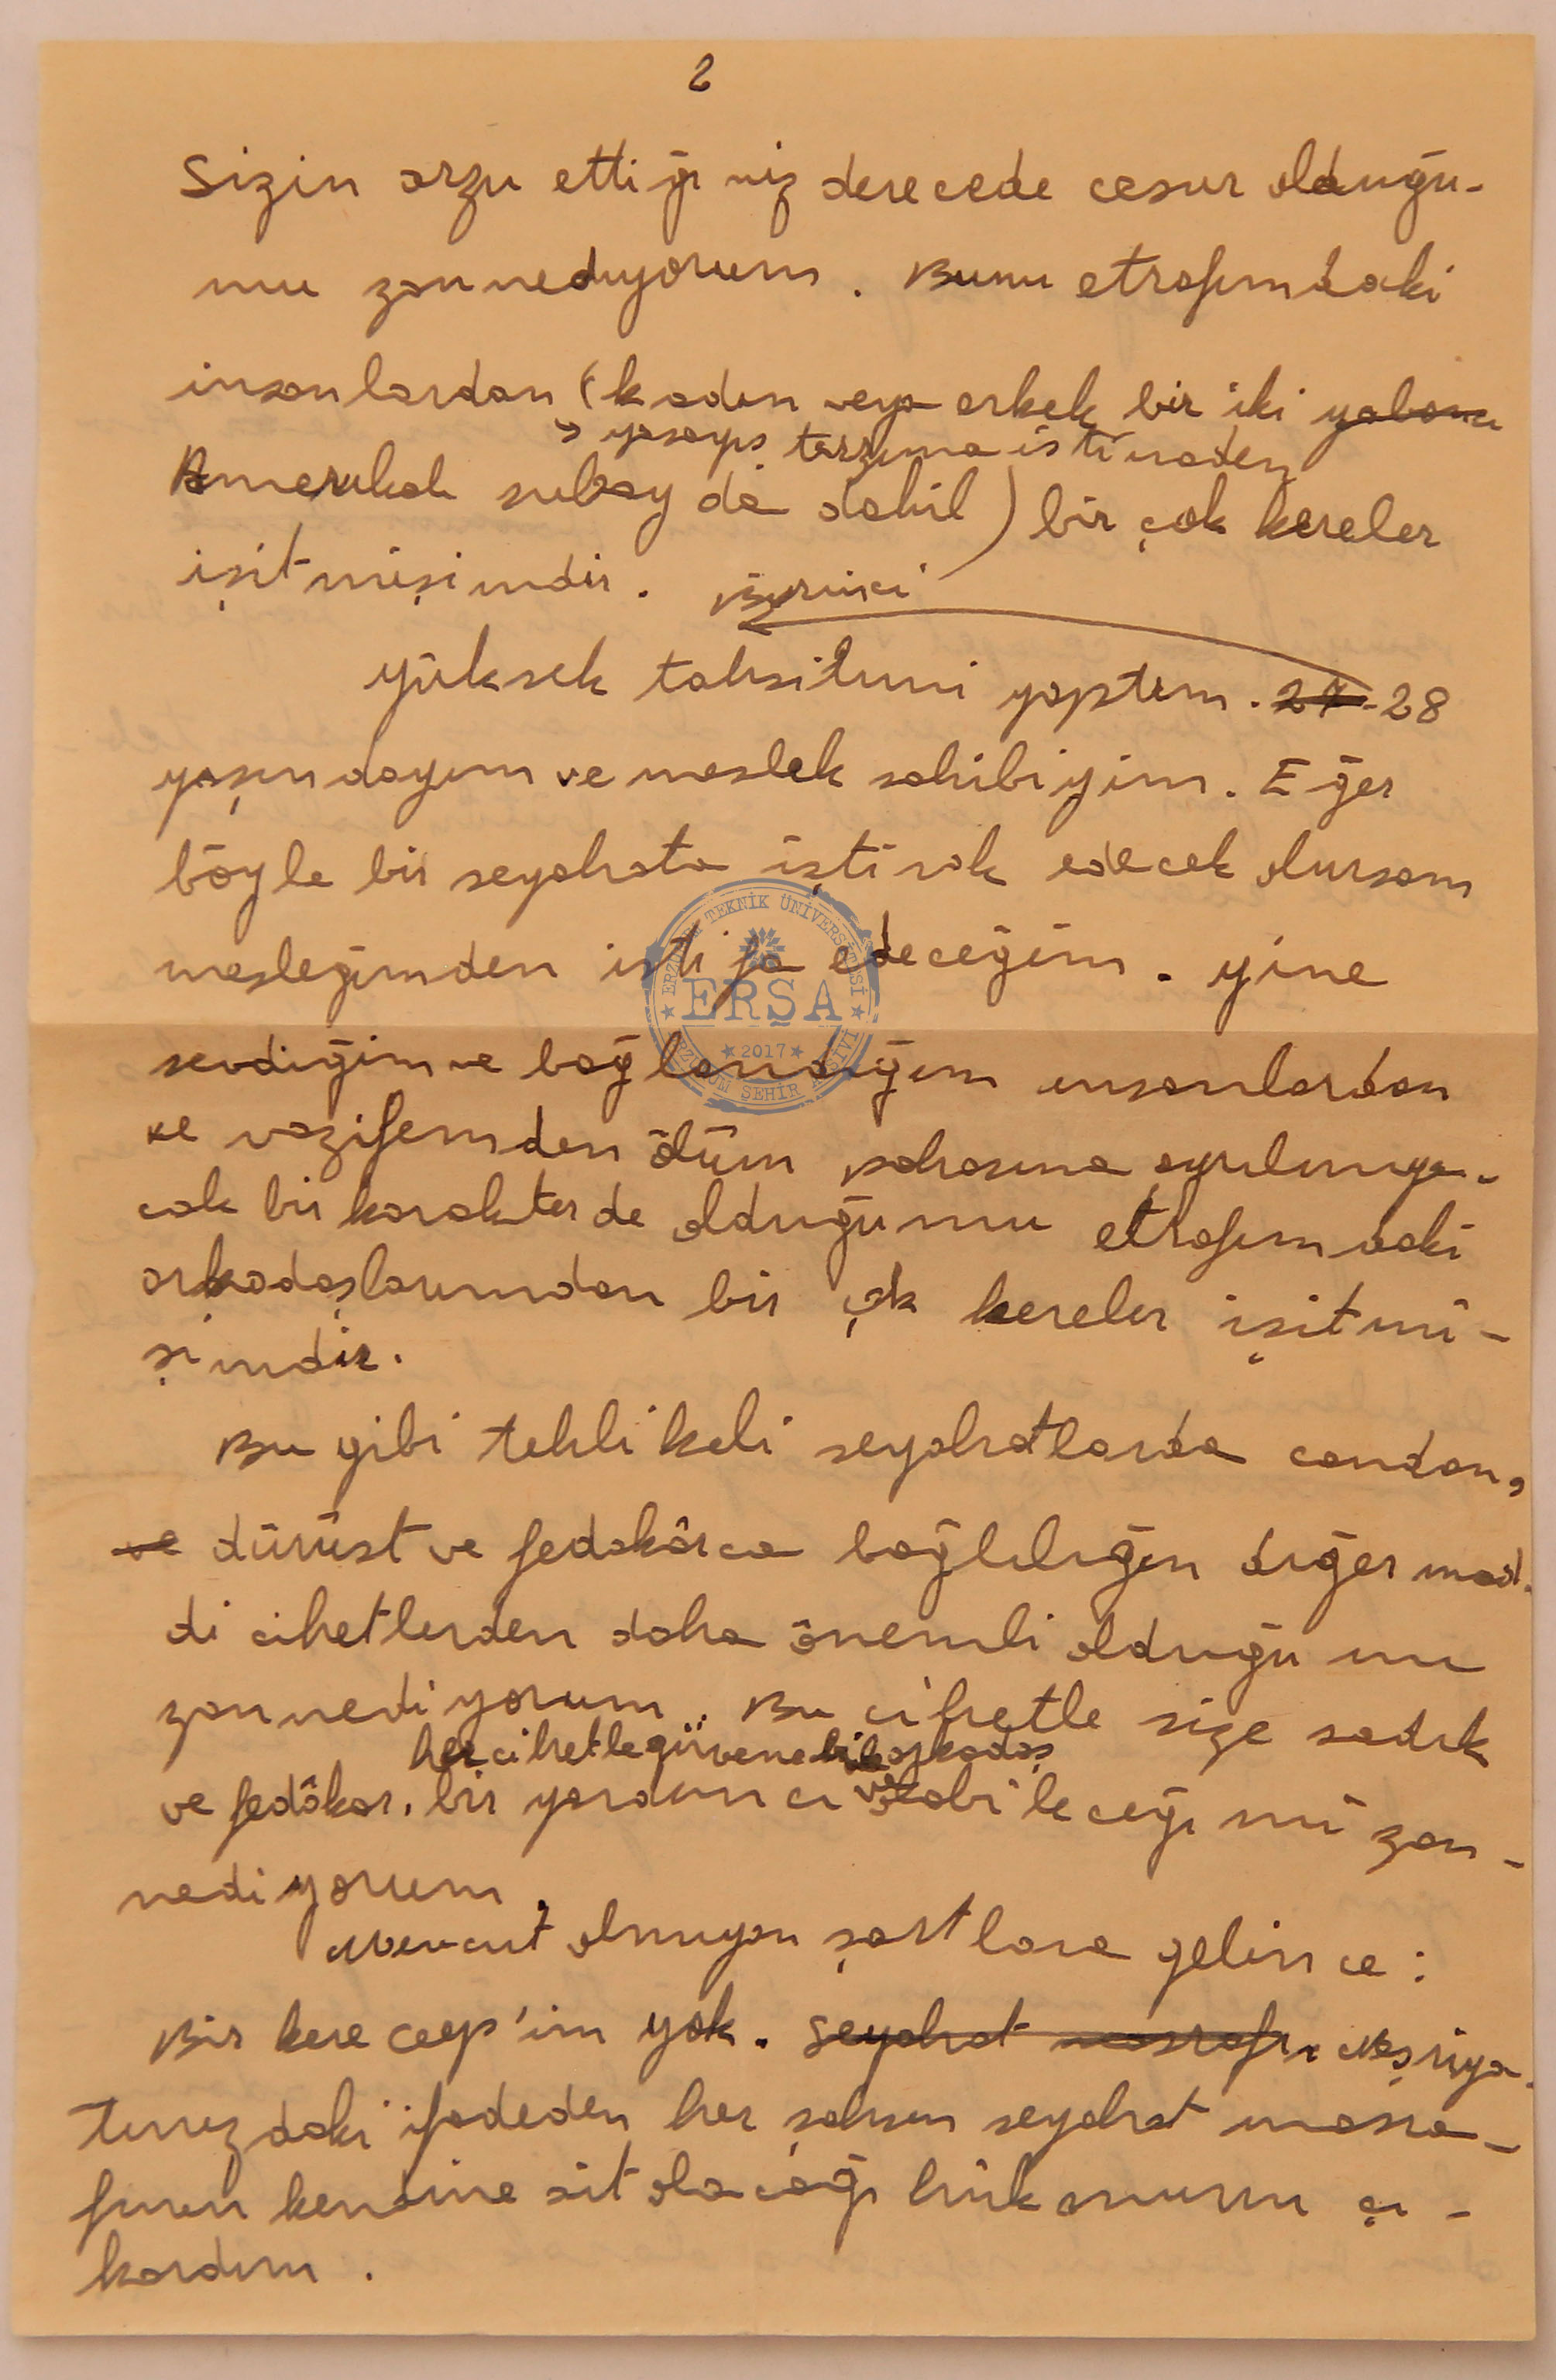 2
Sizin arzu ettiğiniz derecede cesur olduğu-
mu zannediyorum. Bunu etrafımdaki
insanlardan (kadın veya erkek bir iki yabancı
→ yaşayış tarzıma istinaden
Amerikalı subay da dahil) bir çok kereler
işitmişimdir. Birinci
yüksek tahsilimi yaptım. 27-28
yaşındayım ve meslek sahibiyim. Eğer
böyle bir seyahata iştirak edecek olursam
mesleğimden istifa edeceğim. Yine
sevdiğim ve bağlandığım insanlardan
ve vazifemden ölüm pahasına ayrılmıya-
cak bir karakterde olduğumu etrafımdaki
arkadaşlarımdan bir çok kereler işitmi-
şimdir.
Bu gibi tehlikeli seyahatlarda candan,
ve dürüst ve fedakârca bağlılığın diğer mad-
di cihetlerden daha önemli olduğunu
zannediyorum. Bu cihetle size sadık
her cihetle güvenebilir arkadaş
ve fedâkar, bir yardımcı olabileceğimi zan-
nediyorum.
Mevcut olmıyan şartlara gelince:
Bir kere ceep'im yok. Seyahat masrafı Neşriya-
tınızdaki ifadeden her şahsın seyahat masra-
fının kendine ait olacağı hükmünü çı-
kardım.
ERZURUM TEKNİK ÜNİVERSİTESİ
ERŞA
★ 2017 ★
ERZURUM ŞEHİR ARŞİVİ